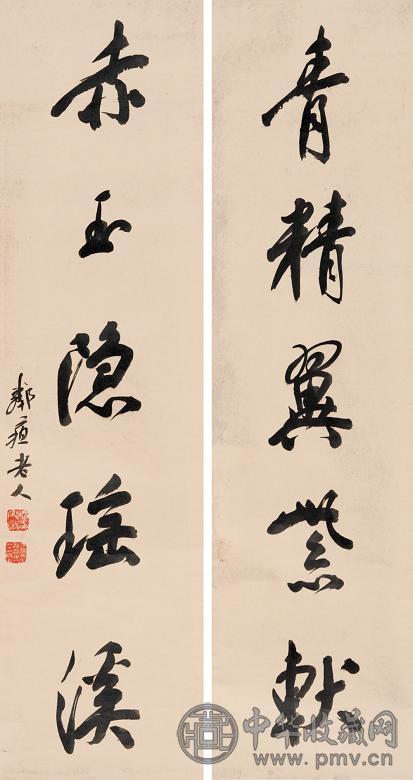 青精翼紫軑
赤玉隐瑶溪
鄰蘇老人
中华收藏网
www.pmv.cn